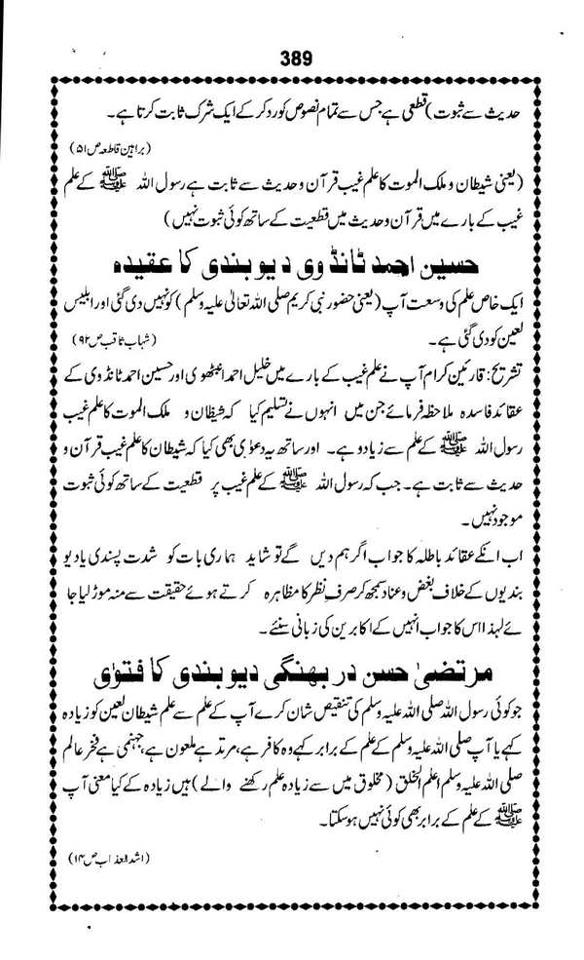 389
حدیث سے ثبوت) قطعی ہے جس سے تمام نصوص کو رد کر کے ایک شرک ثابت کرتا ہے۔
(براہین قاطعہ ص ۵۱)
(یعنی شیطان و ملک الموت کا علم غیب قرآن و حدیث سے ثابت ہے رسول اللہ ﷺ کے علم
غیب کے بارے میں قرآن و حدیث میں قطعیت کے ساتھ کوئی ثبوت نہیں)
حسین احمد ٹانڈوی دیوبندی کا عقیدہ
ایک خاص علم کی وسعت آپ (یعنی حضور نبی کریم صلی اللہ تعالیٰ علیہ وسلم) کو نہیں دی گئی اور ابلیس
لعین کو دی گئی ہے۔
(شہاب ثاقب ص ۹۲)
تشریح: قارئین کرام آپ نے علم غیب کے بارے میں خلیل احمد انبٹھوی اور حسین احمد ٹانڈوی کے
عقائد فاسدہ ملاحظہ فرمائے جن میں انہوں نے تسلیم کیا کہ شیطان و ملک الموت کا علم غیب
رسول اللہ ﷺ کے علم سے زیادہ ہے۔ اور ساتھ یہ دعوٰی بھی کیا کہ شیطان کا علم غیب قرآن و
حدیث سے ثابت ہے۔ جب کہ رسول اللہ ﷺ کے علم غیب پر قطعیت کے ساتھ کوئی ثبوت
موجود نہیں۔
اب انکے عقائد باطلہ کا جواب اگر ہم دیں گے تو شاید ہماری بات کو شدت پسندی یا دیو
بندیوں کے خلاف بغض و عناد سمجھ کر صرف نظر کا مظاہرہ کرتے ہوئے حقیقت سے منہ موڑ لیا جا
ئے لہٰذا اس کا جواب انہیں کے اکابرین کی زبانی سنئے۔
مرتضیٰ حسن دربھنگی دیوبندی کا فتوٰی
جو کوئی رسول اللہ صلی اللہ علیہ وسلم کی تنقیص شان کرے آپ کے علم سے علم شیطان لعین کو زیادہ
کہے یا آپ صلی اللہ علیہ وسلم کے علم کے برابر کہے وہ کافر ہے، مرتد ہے ملعون ہے، جہنمی ہے فخر عالم
صلی اللہ علیہ وسلم اعلم الخلق (مخلوق میں سے زیادہ علم رکھنے والے) ہیں زیادہ کے کیا معنی آپ
ﷺ کے علم کے برابر بھی کوئی نہیں ہو سکتا۔
(اشد العذاب ص ۱۴)